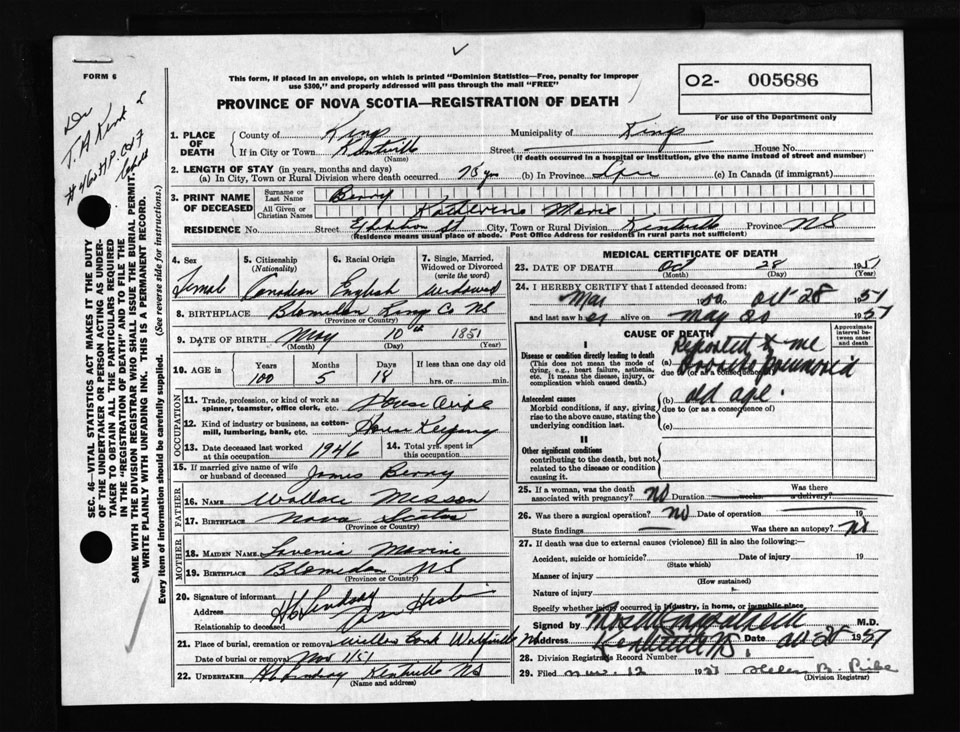 FORM 6
This form, if placed in an envelope, on which is printed "Dominion Statistics—Free, penalty for improper
use $300," and properly addressed will pass through the mail "FREE"
O2- 005686
For use of the Department only
PROVINCE OF NOVA SCOTIA—REGISTRATION OF DEATH
Dr
T. A Kirk
1. PLACE OF DEATH
County of Kings Municipality of Kings
If in City or Town Kentville Street House No.
(Name) (If death occurred in a hospital or institution, give the name instead of street and number)
2. LENGTH OF STAY (in years, months and days)
(a) In City, Town or Rural Division where death occurred 75 yrs (b) In Province Life (c) In Canada (if immigrant)
3. PRINT NAME OF DECEASED
Surname or Last Name Berry
All Given or Christian Names Katherine Marie
RESIDENCE No. Street St City, Town or Rural Division Kentville Province NS
(Residence means usual place of abode. Post Office Address for residents in rural parts not sufficient)
SEC. 46—VITAL STATISTICS ACT MAKES IT THE DUTY
OF THE UNDERTAKER OR PERSON ACTING AS UNDER-
TAKER TO OBTAIN ALL THE PARTICULARS REQUIRED
IN THE "REGISTRATION OF DEATH" AND TO FILE THE
SAME WITH THE DIVISION REGISTRAR WHO SHALL ISSUE THE BURIAL PERMIT.
WRITE PLAINLY WITH UNFADING INK. THIS IS A PERMANENT RECORD.
Every item of information should be carefully supplied. (See reverse side for instructions.)
4. Sex Female
5. Citizenship (Nationality) Canadian
6. Racial Origin English
7. Single, Married, Widowed or Divorced (write the word) Widowed
8. BIRTHPLACE Blomidon Kings Co NS
(Province or Country)
9. DATE OF BIRTH May 10th 1851
(Month) (Day) (Year)
10. AGE in Years 100 Months 5 Days 18 If less than one day old hrs. or min.
OCCUPATION
11. Trade, profession, or kind of work as
spinner, teamster, office clerk, etc. House Wife
12. Kind of industry or business, as cotton-
mill, lumbering, bank, etc. House Keeping
13. Date deceased last worked
at this occupation 1946
14. Total yrs. spent in
this occupation
15. If married give name of wife
or husband of deceased James Berry
FATHER
16. NAME Wallace
17. BIRTHPLACE Nova Scotia
(Province or Country)
MOTHER
18. MAIDEN NAME Lavenia
19. BIRTHPLACE Blomidon NS
(Province or Country)
20. Signature of informant H C Lindsay
Address
Relationship to deceased
21. Place of burial, cremation or removal Willow Bank Wolfville NS
Date of burial or removal Nov 1/51
22. UNDERTAKER Lindsay Kentville NS
(Name and address)
MEDICAL CERTIFICATE OF DEATH
23. DATE OF DEATH Oct 28 1951
(Month) (Day) (Year)
24. I HEREBY CERTIFY that I attended deceased from:
Mar 1950 Oct 28 1951
and last saw her alive on May 20 1951
CAUSE OF DEATH
Approximate interval between onset and death
I
Disease or condition directly leading to death
(This does not mean the mode of
dying, e.g., heart failure, asthenia,
etc. It means the disease, injury, or
complication which caused death.)
(a) Reported to me
due to (or as a consequence of)
Antecedent causes
Morbid conditions, if any, giving
rise to the above cause, stating the
underlying condition last.
(b) old age.
due to (or as a consequence of)
(c)
II
Other significant conditions
contributing to the death, but not
related to the disease or condition
causing it.
25. If a woman, was the death
associated with pregnancy? No Duration weeks Was there a delivery?
26. Was there a surgical operation? No Date of operation 19
State findings Was there an autopsy? No
27. If death was due to external causes (violence) fill in also the following:—
Accident, suicide or homicide? Date of injury 19
(State which)
Manner of injury
(How sustained)
Nature of injury
Specify whether injury occurred in industry, in home, or in public place
Signed by M.D.
Address Kentville NS. Date Oct 28 1951
28. Division Registrar's Record Number
29. Filed Nov. 12 1951 Helen B.
(Division Registrar)